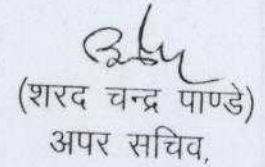 (शरद चन्द्र पाण्डे)
अपर सचिव,